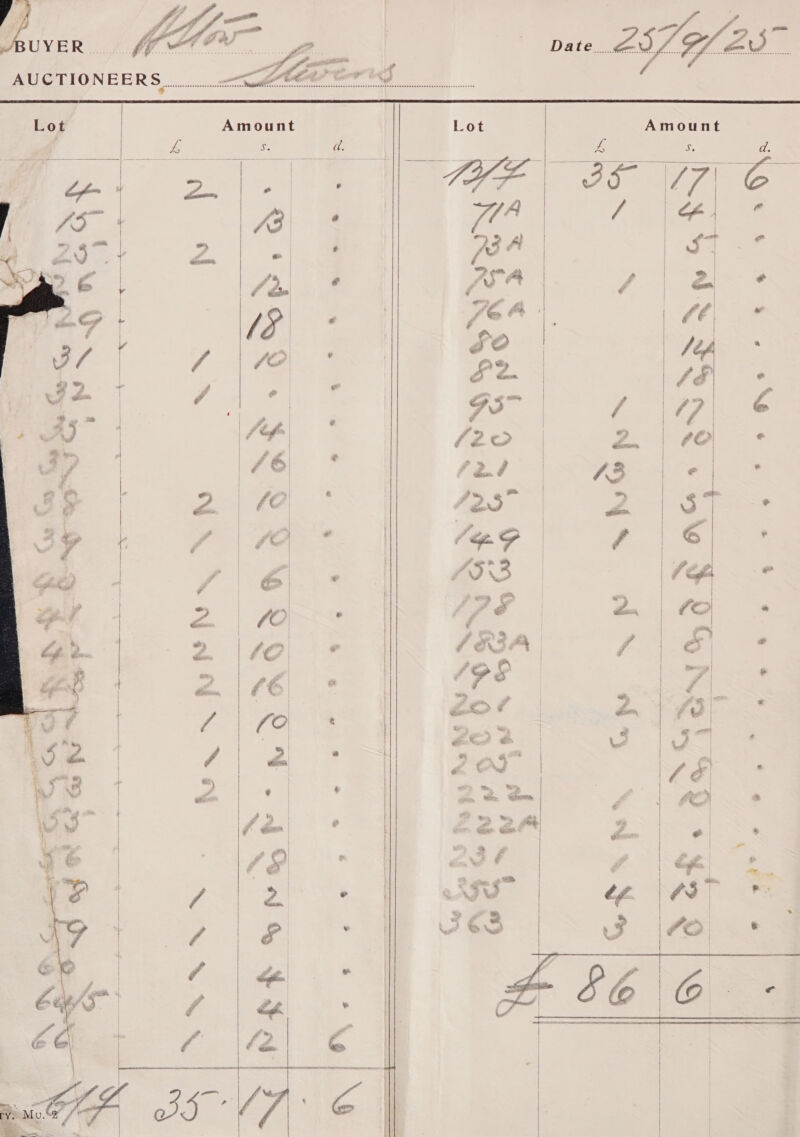 BUYER H Stow Date 25/9/25
AUCTIONEERS Stevens
Lot Amount
£ s. d.
4 2 . .
15 13 .
25 2 . .
26 12 .
29 18 .
31 1 10 .
32 1 . .
35 14 .
37 16 .
38 2 10 .
39 1 10 .
40 1 6 .
41 2 10 .
42 2 10 .
48 2 16 .
1 10 .
52 1 2 .
53 2 . .
55 12 .
56 18 .
58 1 2 .
59 1 8 .
60 1 4 .
64/5 1 4 .
66 1 12 6
35 . 17 . 6
Lot Amount
£ s. d.
B/F 35 17 6
71A 1 4 .
73A 5 .
75A 1 2 .
76A 11 .
80 14 .
82 18 .
95 1 17 6
120 2 10 .
121 13 . .
125 2 5 .
149 1 6 .
153 14 .
178 2 10 .
183A 1 8 .
198 7 .
201 2 15 .
202 3 5 .
205 18 .
222 1 10 .
222A 2 . .
231 1 4 .
355 4 15 .
363 3 10 .
£ 86 6 .